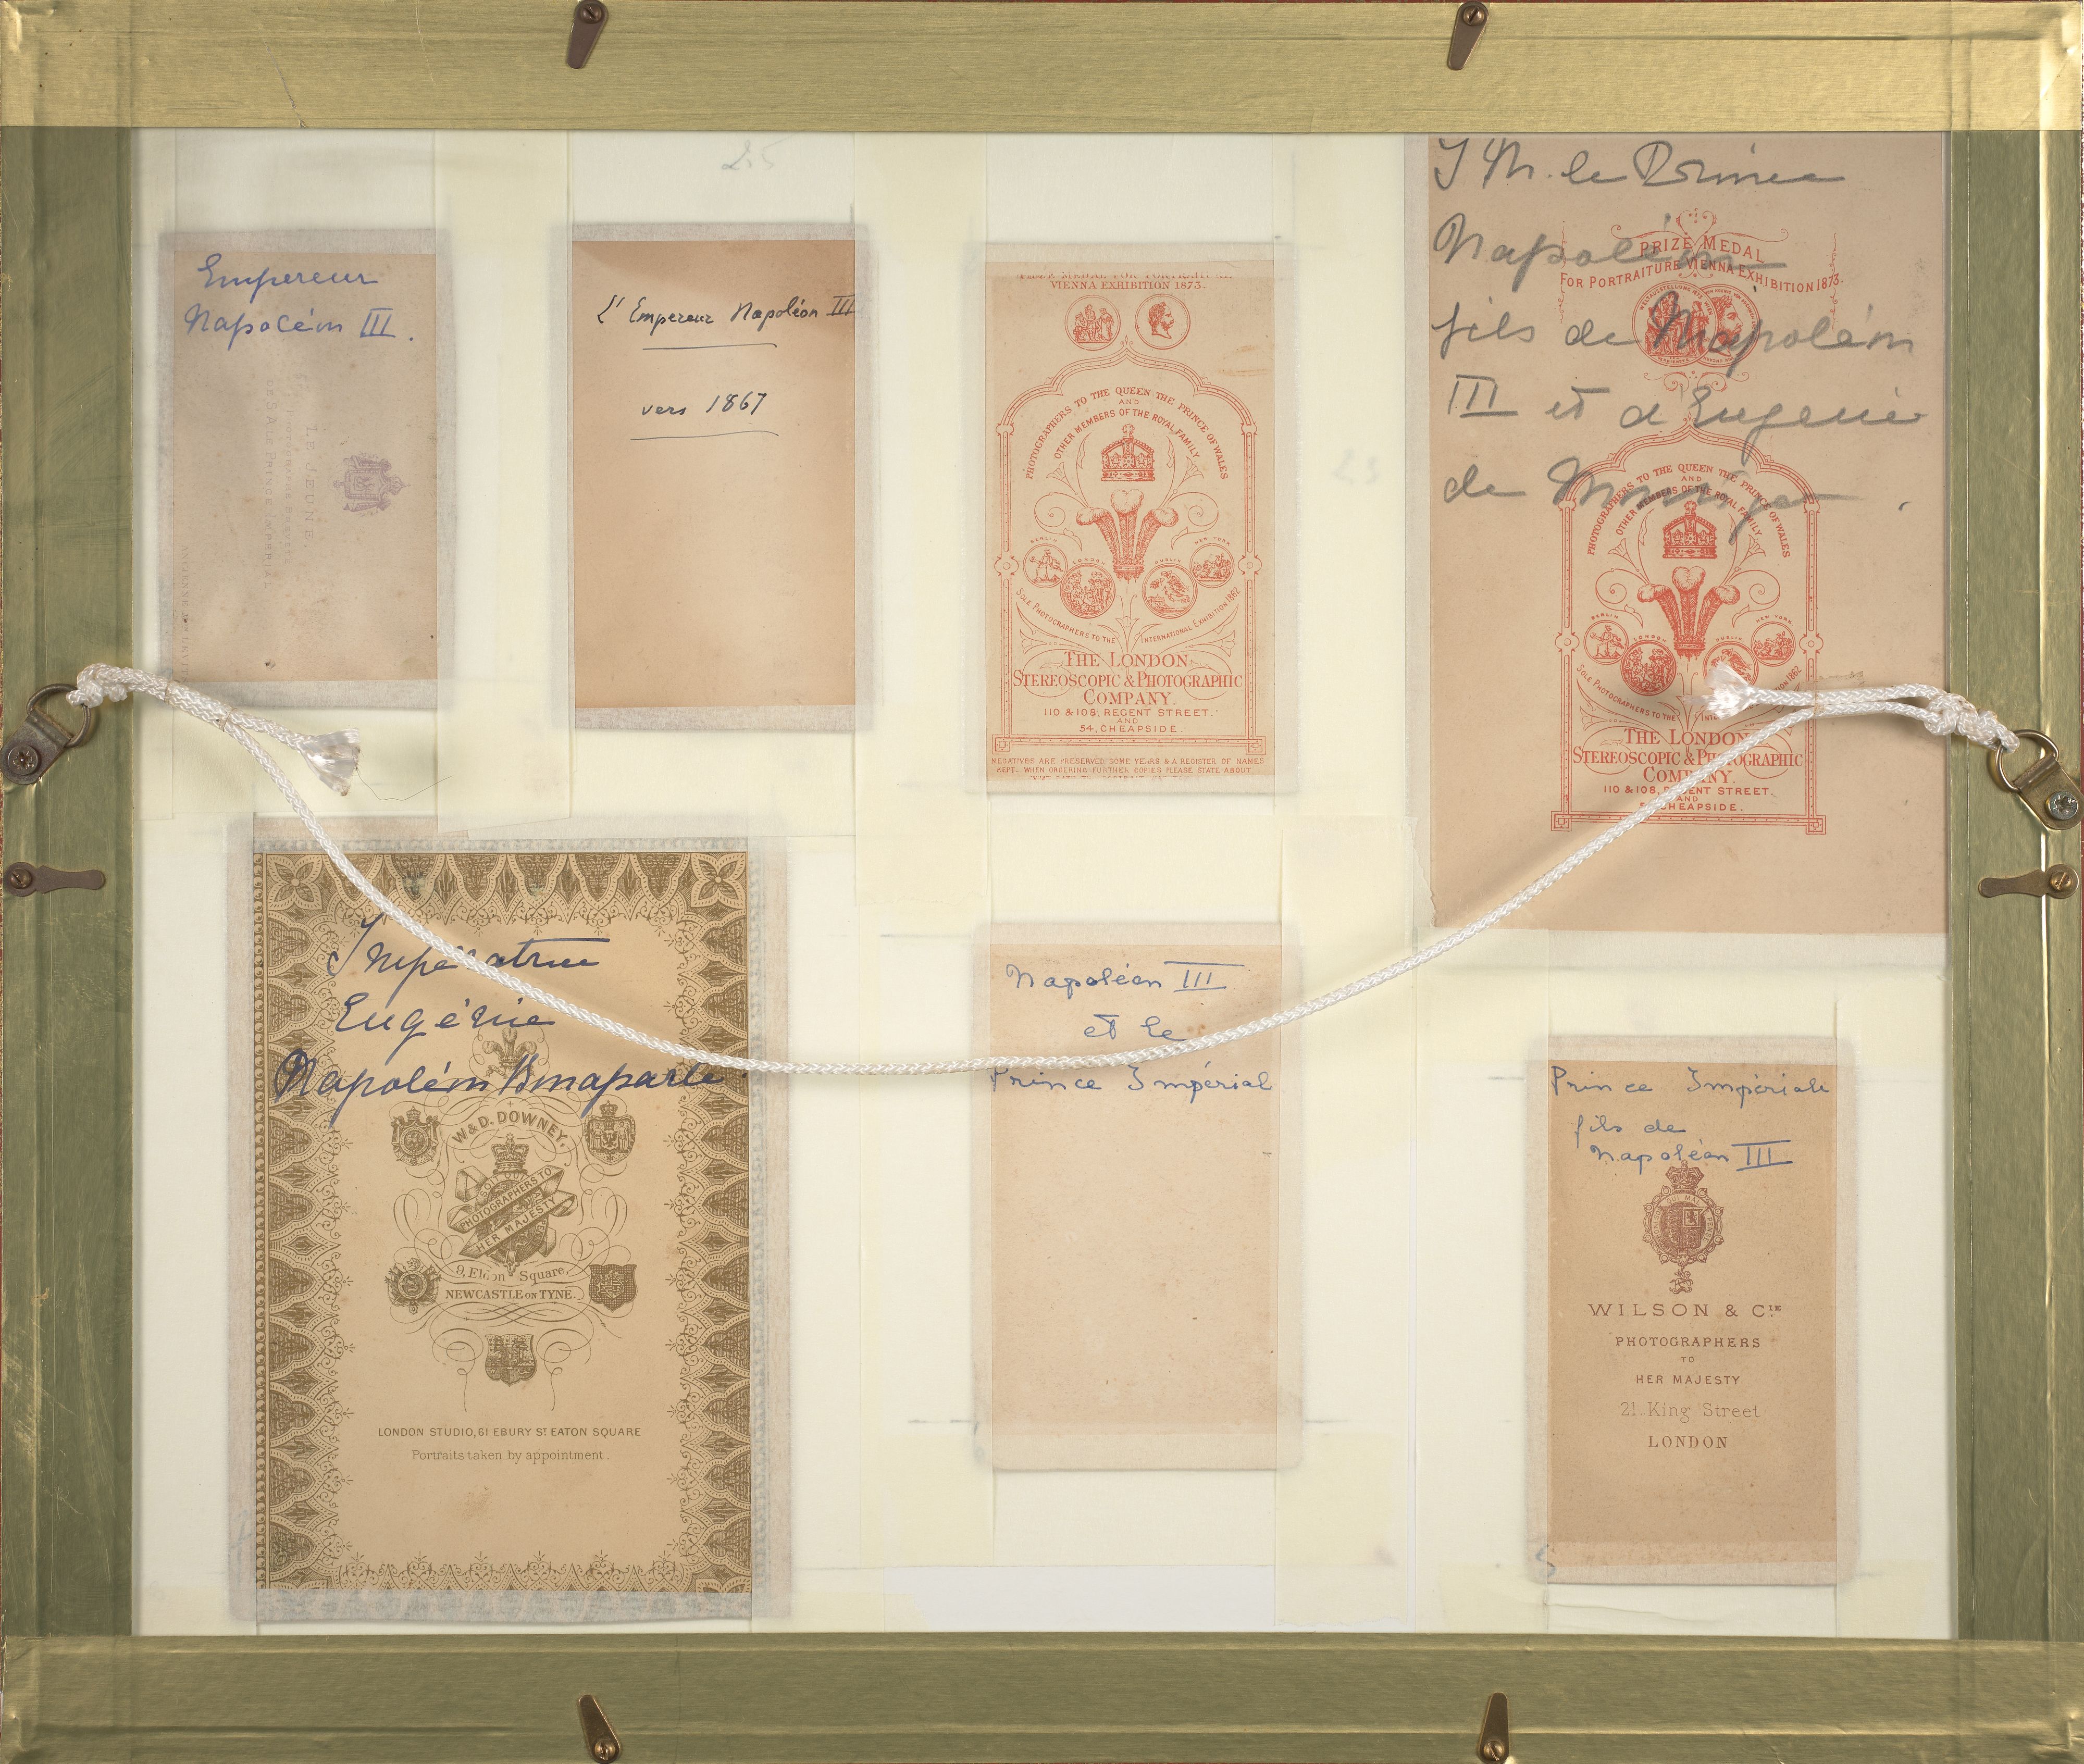 25
Empereur
Napoléon III.
LE JEUNE,
DE S.A. LE PRINCE IMPÉRIAL
L'Empereur Napoléon III
vers 1867
PRIZE MEDAL FOR PORTRAITURE.
VIENNA EXHIBITION 1873.
PHOTOGRAPHERS TO THE QUEEN THE PRINCE OF WALES
AND
OTHER MEMBERS OF THE ROYAL FAMILY
BERLIN
LONDON
DUBLIN
NEW YORK
SOLE PHOTOGRAPHERS TO THE INTERNATIONAL EXHIBITION 1862
THE LONDON
STEREOSCOPIC & PHOTOGRAPHIC
COMPANY.
110 & 108, REGENT STREET.
AND
54, CHEAPSIDE.
NEGATIVES ARE PRESERVED SOME YEARS & A REGISTER OF NAMES
KEPT. WHEN ORDERING FURTHER COPIES PLEASE STATE ABOUT
le Prince
Napoléon
fils de Napoléon
III et d'Eugénie
de
PRIZE MEDAL
FOR PORTRAITURE VIENNA EXHIBITION 1873.
PHOTOGRAPHERS TO THE QUEEN THE PRINCE OF WALES
AND
OTHER MEMBERS OF THE ROYAL FAMILY
BERLIN
LONDON
DUBLIN
NEW YORK
SOLE PHOTOGRAPHERS TO THE
THE LONDON
STEREOSCOPIC & PHOTOGRAPHIC
COMPANY.
110 & 108, REGENT STREET.
AND
CHEAPSIDE.
Impératrice
Eugénie
Napoléon Bonaparte
W. & D. DOWNEY,
PHOTOGRAPHERS TO
HER MAJESTY
9, Eldon Square,
NEWCASTLE ON TYNE.
LONDON STUDIO, 61 EBURY ST. EATON SQUARE
Portraits taken by appointment.
Napoléon III
et le
Prince Impérial
Prince Impériale
fils de
Napoléon III
WILSON & CIE
PHOTOGRAPHERS
TO
HER MAJESTY
21. King Street
LONDON
5